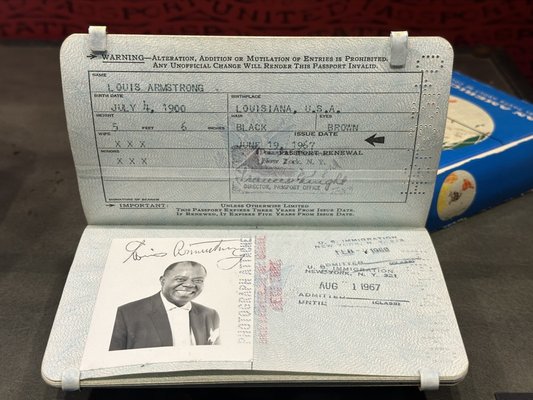 WARNING—ALTERATION, ADDITION OR MUTILATION OF ENTRIES IS PROHIBITED.
ANY UNOFFICIAL CHANGE WILL RENDER THIS PASSPORT INVALID.
NAME
LOUIS ARMSTRONG
BIRTH DATE BIRTHPLACE
JULY 4, 1900 LOUISIANA, U.S.A.
HEIGHT HAIR EYES
5 FEET 6 INCHES BLACK BROWN
WIFE ISSUE DATE
X X X JUNE 19, 1967
MINORS PASSPORT RENEWAL
X X X New York, N. Y.
DIRECTOR, PASSPORT OFFICE
SIGNATURE OF BEARER
IMPORTANT: UNLESS OTHERWISE LIMITED
THIS PASSPORT EXPIRES THREE YEARS FROM ISSUE DATE.
IF RENEWED, IT EXPIRES FIVE YEARS FROM ISSUE DATE.
Louis Armstrong
PHOTOGRAPH ATTACHED
U. S. IMMIGRATION
NEW YORK, N.Y.
FEB 1968
ADMITTED
U. S. IMMIGRATION
NEW YORK, N. Y. 321
AUG 1 1967
ADMITTED
UNTIL (CLASS)